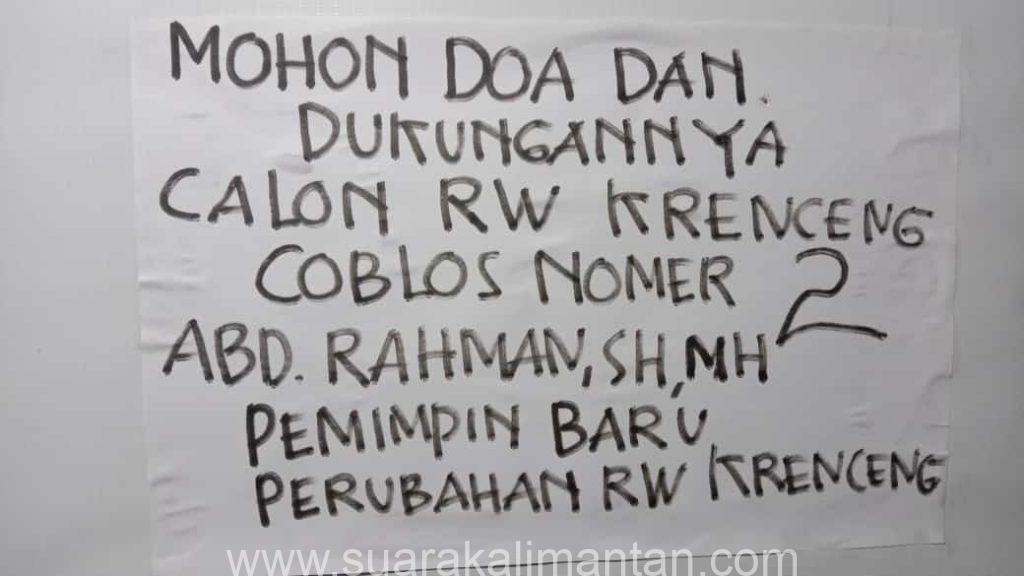 MOHON DOA DAN.
DUKUNGANNYA
CALON RW KRENCENG
COBLOS NOMER 2
ABD. RAHMAN, SH, MH
PEMIMPIN BARU
PERUBAHAN RW KRENCENG
www.suarakalimantan.com